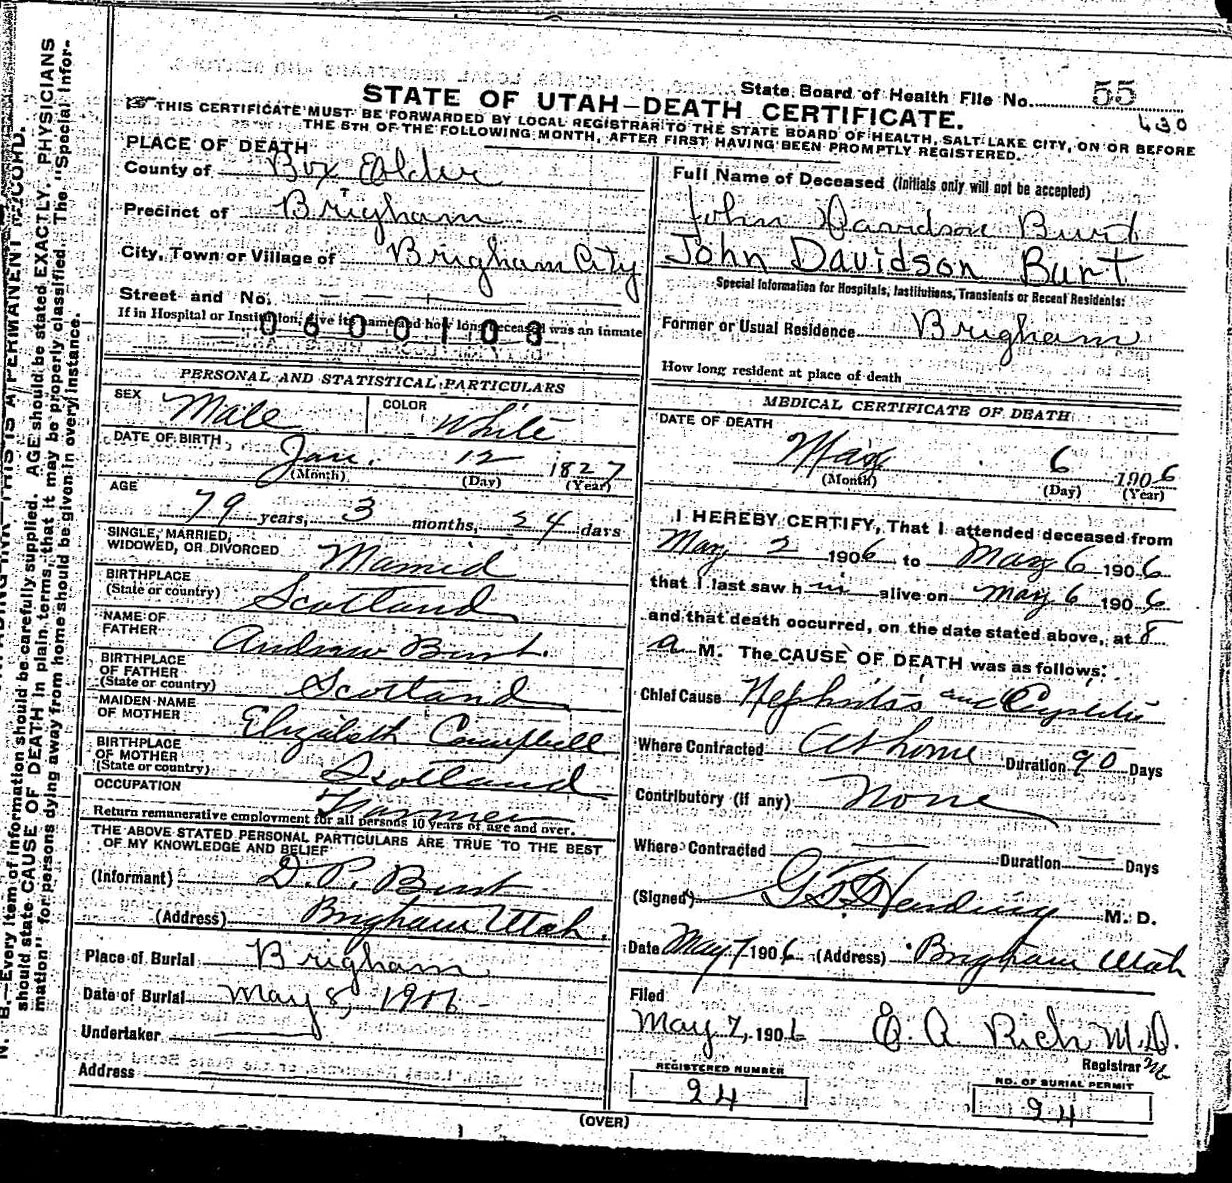 State Board of Health File No. 55
430
STATE OF UTAH—DEATH CERTIFICATE.
THIS CERTIFICATE MUST BE FORWARDED BY LOCAL REGISTRAR TO THE STATE BOARD OF HEALTH, SALT LAKE CITY, ON OR BEFORE
THE 5TH OF THE FOLLOWING MONTH, AFTER FIRST HAVING BEEN PROMPTLY REGISTERED.
PLACE OF DEATH
County of Box Elder
Precinct of Brigham
City, Town or Village of Brigham City
Street and No.
If in Hospital or Institution, give its name and how long deceased was an inmate
0600108
PERSONAL AND STATISTICAL PARTICULARS
SEX Male COLOR White
DATE OF BIRTH Jan. 12 1827
(Month) (Day) (Year)
AGE
79 years, 3 months, 24 days
SINGLE, MARRIED,
WIDOWED, OR DIVORCED Married
BIRTHPLACE
(State or country) Scotland
NAME OF
FATHER Andrew Burt.
BIRTHPLACE
OF FATHER
(State or country) Scotland
MAIDEN NAME
OF MOTHER Elizabeth Campbell
BIRTHPLACE
OF MOTHER
(State or country) Scotland
OCCUPATION Farmer
Return remunerative employment for all persons 10 years of age and over.
THE ABOVE STATED PERSONAL PARTICULARS ARE TRUE TO THE BEST
OF MY KNOWLEDGE AND BELIEF
(Informant) D. P. Burt
(Address) Brigham Utah.
Place of Burial Brigham
Date of Burial May 8, 1906
Undertaker
Address
Full Name of Deceased (Initials only will not be accepted)
John Davidson Burt
John Davidson Burt
Special Information for Hospitals, Institutions, Transients or Recent Residents:
Former or Usual Residence Brigham
How long resident at place of death
MEDICAL CERTIFICATE OF DEATH
DATE OF DEATH
May 6 1906
(Month) (Day) (Year)
I HEREBY CERTIFY, That I attended deceased from
May 2 1906 to May 6 1906
that I last saw h im alive on May 6 1906
and that death occurred, on the date stated above, at 8
a M. The CAUSE OF DEATH was as follows:
Chief Cause Nephritis and Cystitis
Where Contracted At home Duration 90 Days
Contributory (if any) None
Where Contracted Duration Days
(Signed) Harding M. D.
Date May 7 1906 (Address) Brigham Utah
Filed
May 7, 1906 E A Rich M.D.
Registrar
REGISTERED NUMBER
24
NO. OF BURIAL PERMIT
24
(OVER)
N. B.—Every item of information should be carefully supplied. AGE should be stated EXACTLY. PHYSICIANS
should state CAUSE OF DEATH in plain terms, that it may be properly classified. The "Special Infor-
mation" for persons dying away from home should be given in every instance.
THIS IS A PERMANENT RECORD.